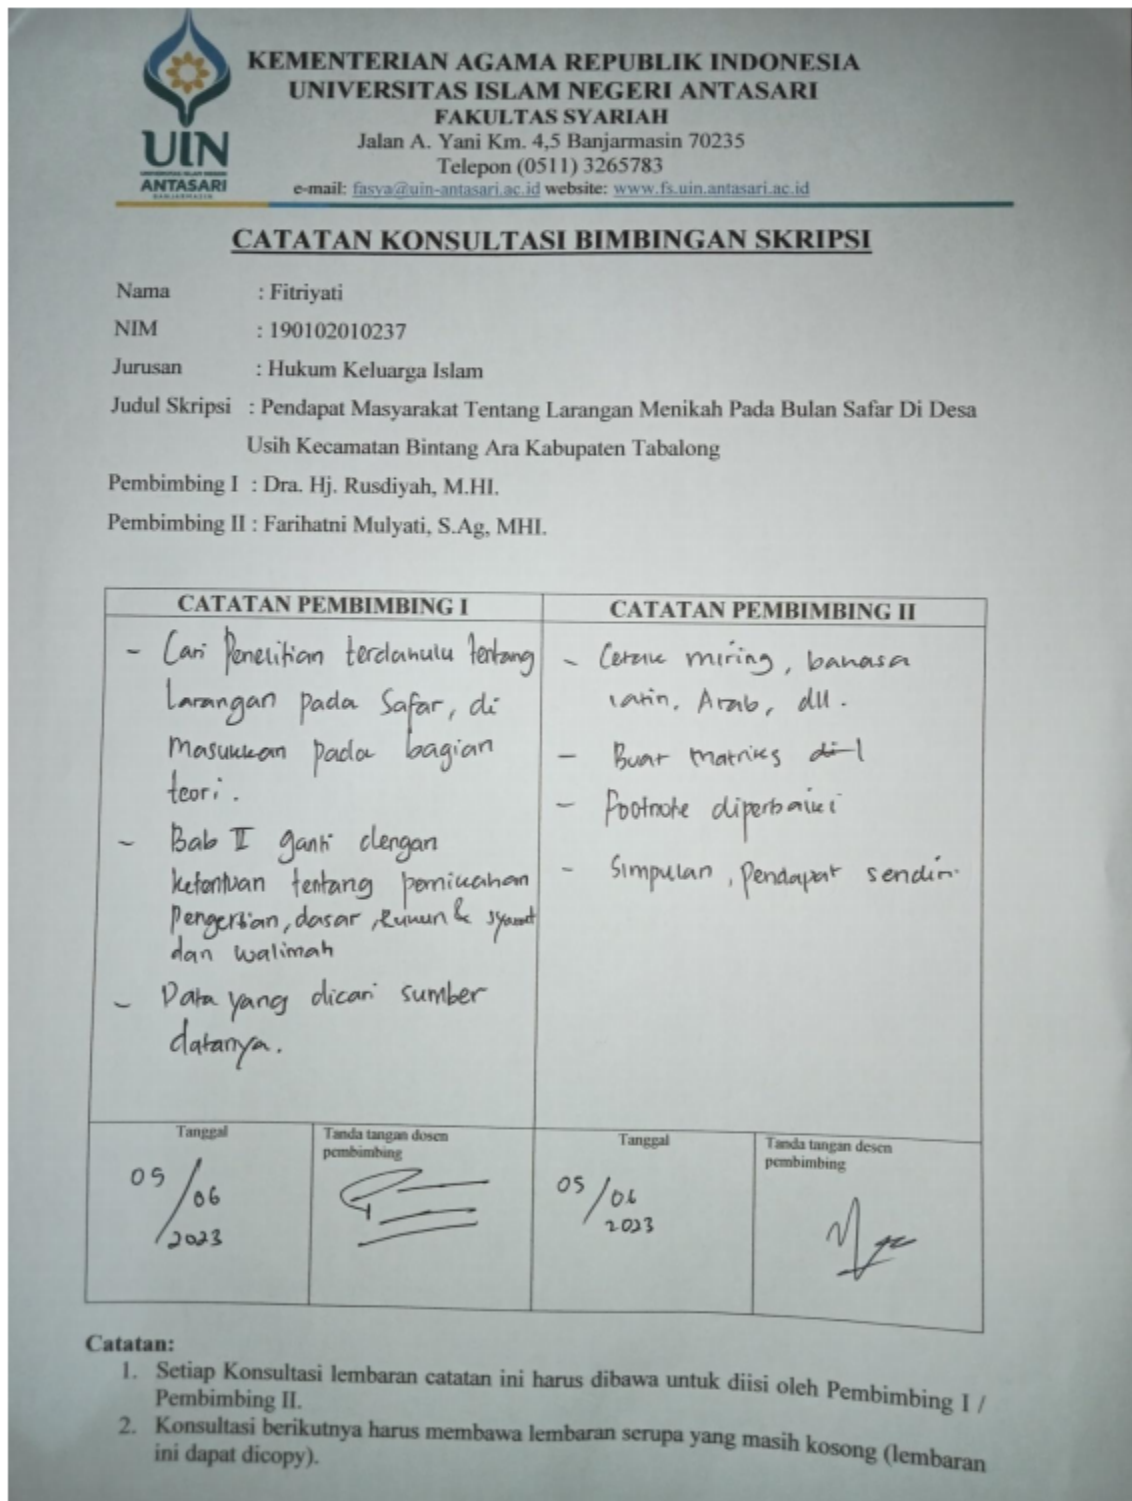 KEMENTERIAN AGAMA REPUBLIK INDONESIA
UNIVERSITAS ISLAM NEGERI ANTASARI
FAKULTAS SYARIAH
Jalan A. Yani Km. 4,5 Banjarmasin 70235
Telepon (0511) 3265783
e-mail: fasya@uin-antasari.ac.id website: www.fs.uin.antasari.ac.id
UIN
UNIVERSITAS ISLAM NEGERI
ANTASARI
BANJARMASIN
CATATAN KONSULTASI BIMBINGAN SKRIPSI
Nama : Fitriyati
NIM : 190102010237
Jurusan : Hukum Keluarga Islam
Judul Skripsi : Pendapat Masyarakat Tentang Larangan Menikah Pada Bulan Safar Di Desa
Usih Kecamatan Bintang Ara Kabupaten Tabalong
Pembimbing I : Dra. Hj. Rusdiyah, M.HI.
Pembimbing II : Farihatni Mulyati, S.Ag, MHI.
CATATAN PEMBIMBING I
- Cari Penelitian terdahulu tentang
Larangan pada Safar, di
Masukkan pada bagian
teori.
- Bab II ganti dengan
ketentuan tentang pernikahan
Pengertian, dasar, Rukun & syarat
dan walimah
- Data yang dicari sumber
datanya.
CATATAN PEMBIMBING II
- Cetak miring, bahasa
latin, Arab, dll.
- Buat matriks
- Footnote diperbaiki
- Simpulan, Pendapat sendiri.
Tanggal
05/06
2023
Tanda tangan dosen
pembimbing
Tanggal
05/06
2023
Tanda tangan desen
pembimbing
Catatan:
1. Setiap Konsultasi lembaran catatan ini harus dibawa untuk diisi oleh Pembimbing I /
Pembimbing II.
2. Konsultasi berikutnya harus membawa lembaran serupa yang masih kosong (lembaran
ini dapat dicopy).